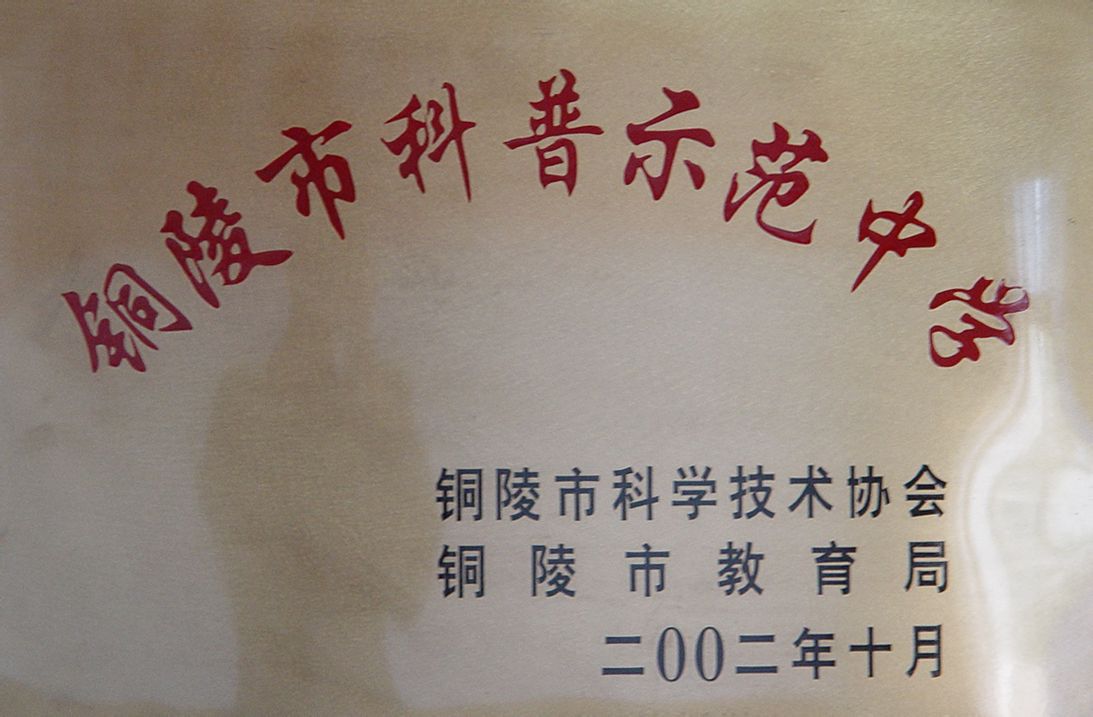 铜陵市科普示范中学
铜陵市科学技术协会
铜陵市教育局
二00二年十月